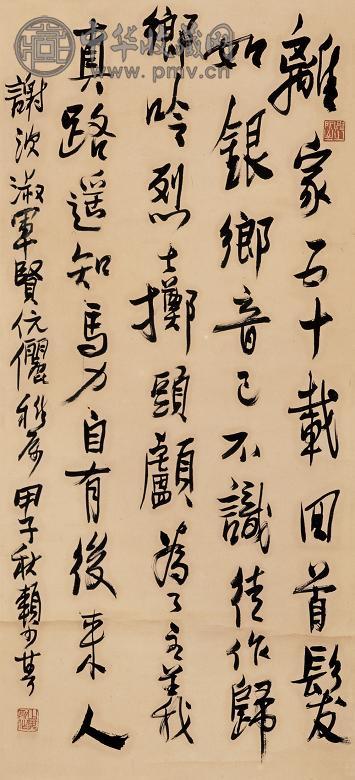 中华收藏网
www.pmv.cn
離家五十載回首髮
如銀鄉音已不識徒作歸
鄉吟烈士擲頭顱為了主義
真路遙知馬力自有後來人
謝淑軍賢伉儷雅属 甲子秋賴少其